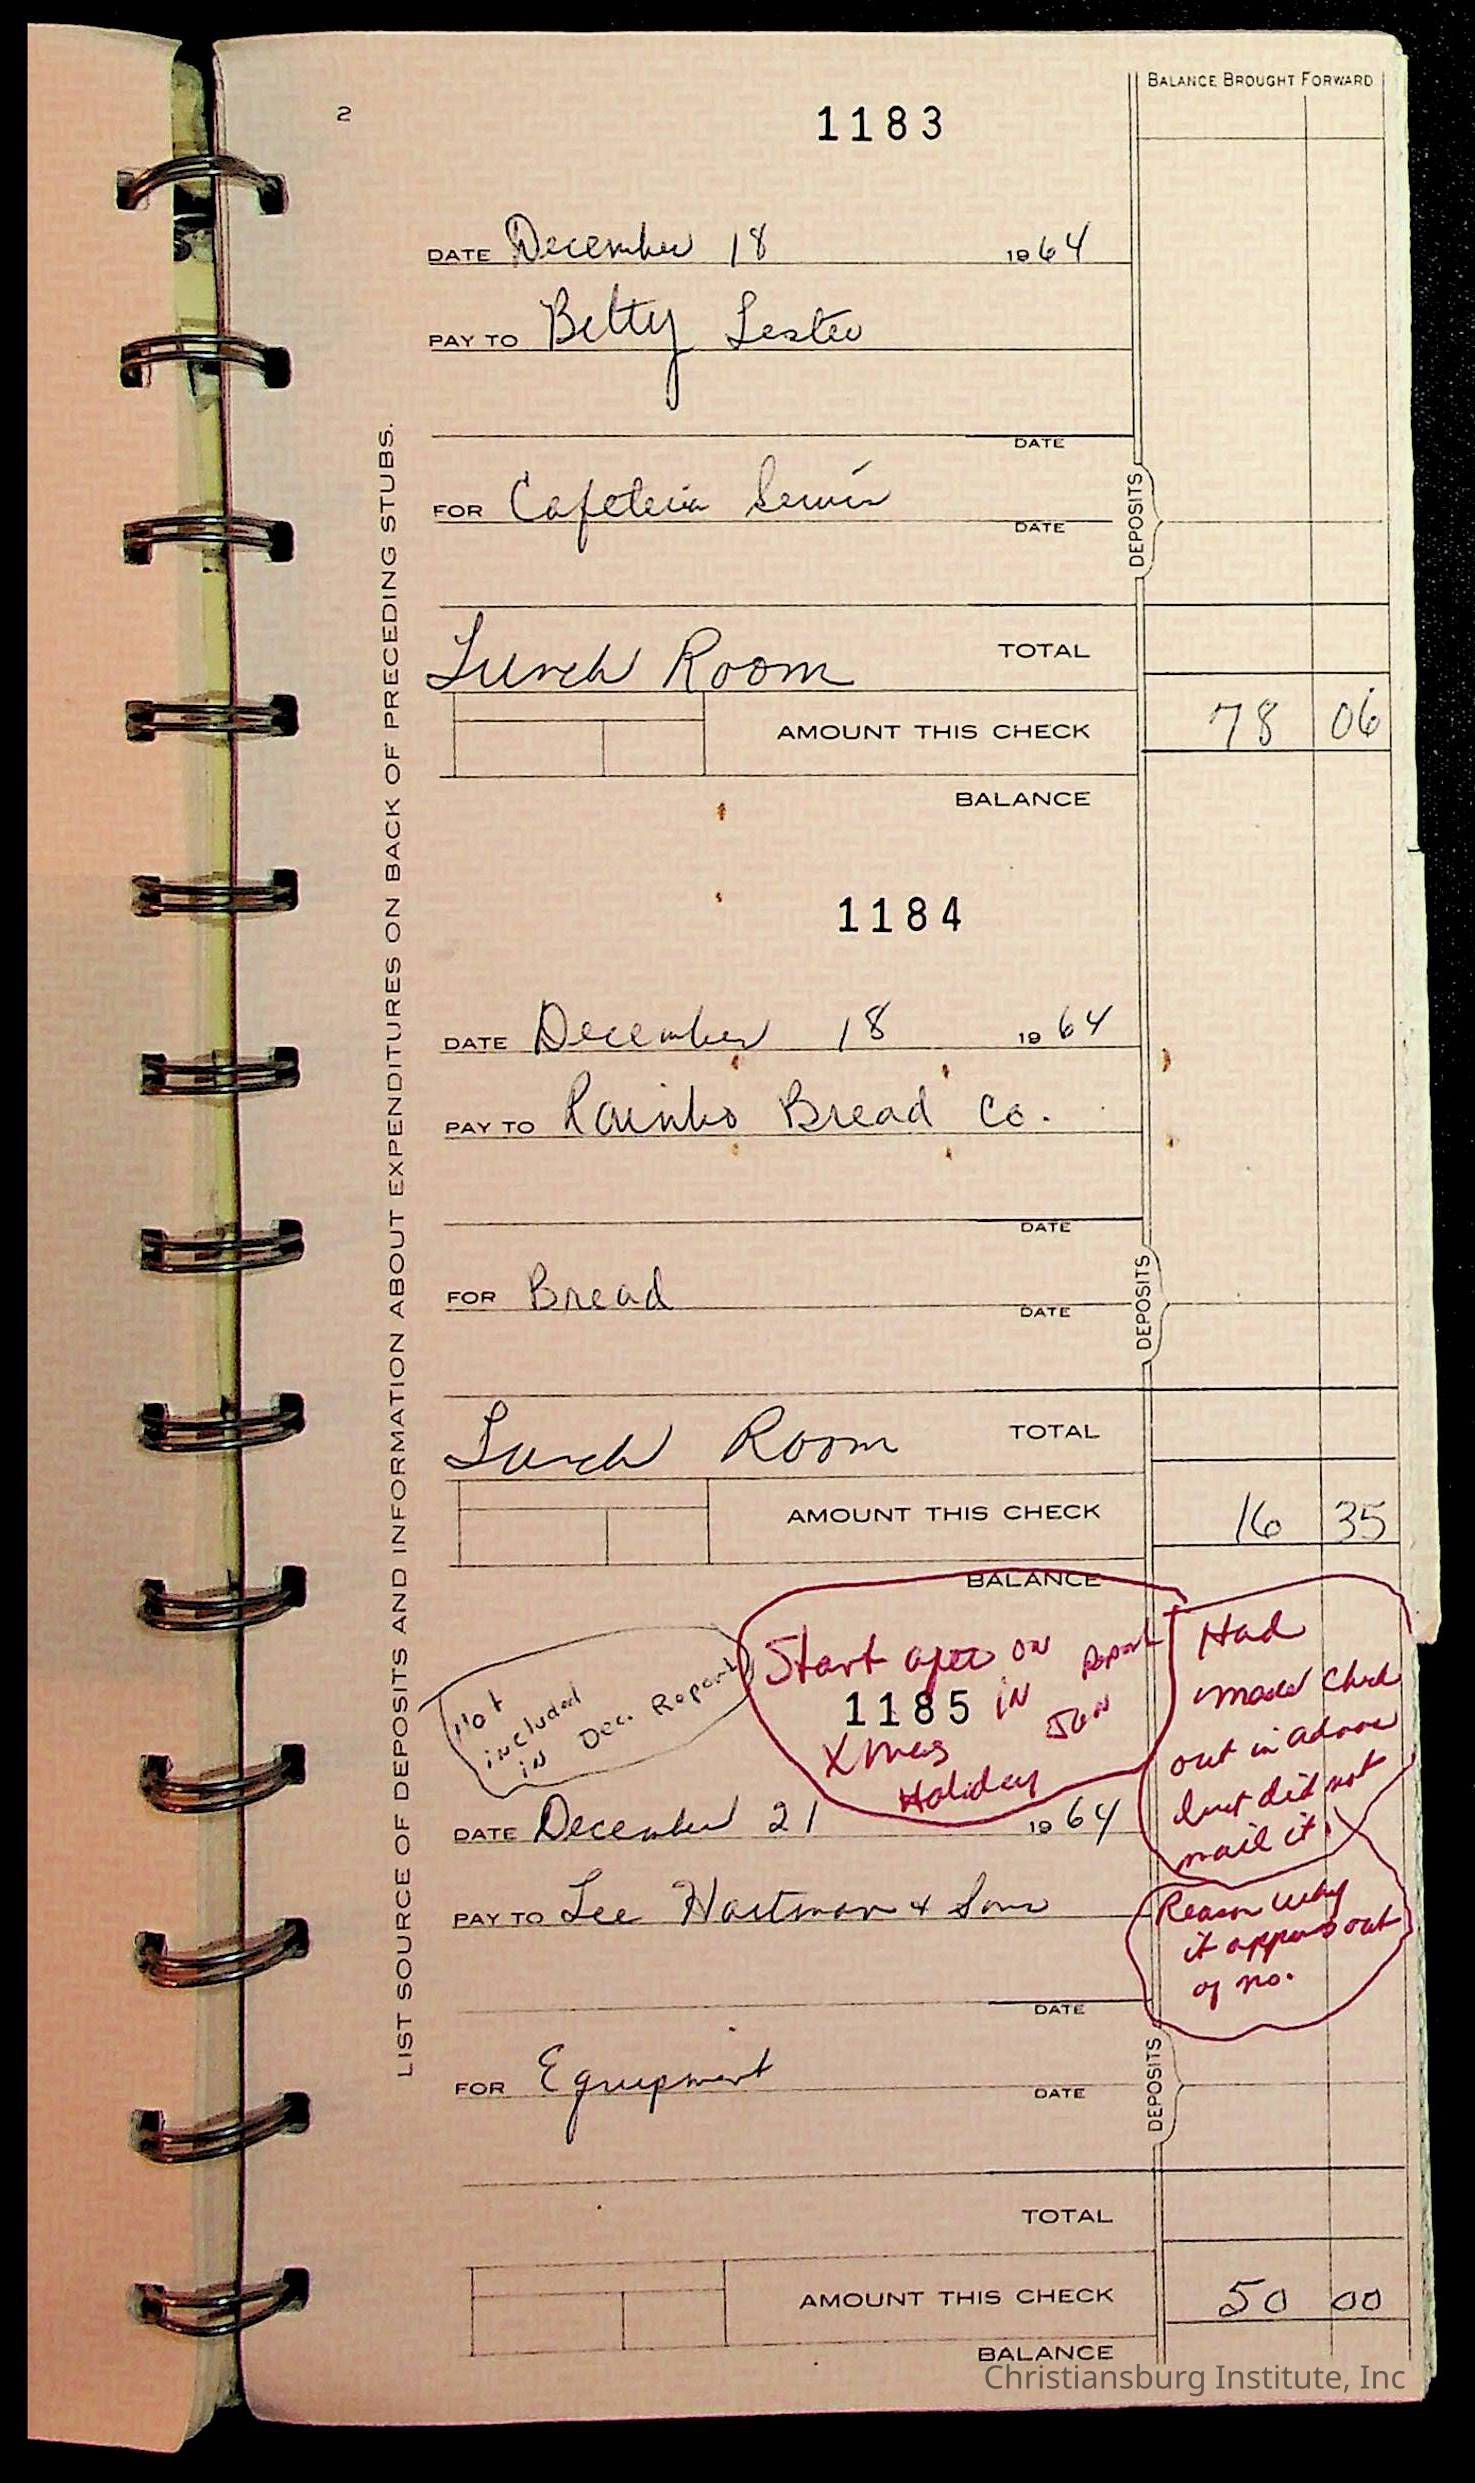 2
BALANCE BROUGHT FORWARD
1183
DATE December 18 1964
PAY TO Betty Lester
DATE
FOR Cafeteria Servic
DATE
DEPOSITS
Lunch Room TOTAL
AMOUNT THIS CHECK 78 06
BALANCE
LIST SOURCE OF DEPOSITS AND INFORMATION ABOUT EXPENDITURES ON BACK OF PRECEDING STUBS.
1184
DATE December 18 1964
PAY TO Rainbo Bread Co.
DATE
FOR Bread
DATE
DEPOSITS
Lunch Room TOTAL
AMOUNT THIS CHECK 16 35
BALANCE
Not
included
in Dec. Report
Start after on Report
1185 IN Jan
Xmas
Holiday
Had
made Check
out in advance
but did not
mail it.
Reason why
it appears out
of no.
DATE December 21 1964
PAY TO Lee Hartman & Sons
DATE
FOR Equipment
DATE
DEPOSITS
TOTAL
AMOUNT THIS CHECK 50 00
BALANCE
Christiansburg Institute, Inc